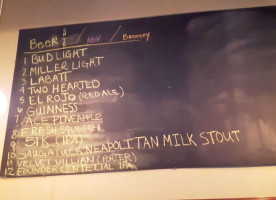 BEER / ABV / Brewery
1 BUD LIGHT
2 MILLER LIGHT
3 LABATT
4 TWO HEARTED
5 EL ROJO (RED ALE)
6 GUINNESS
7 ACE PINEAPPLE
8 FRESH
9 (IPA)
10 SAUGATUCK NEAPOLITAN MILK STOUT
11 VELVET VILLIAN (PORTER)
12 FOUNDER CENTENIAL IPA